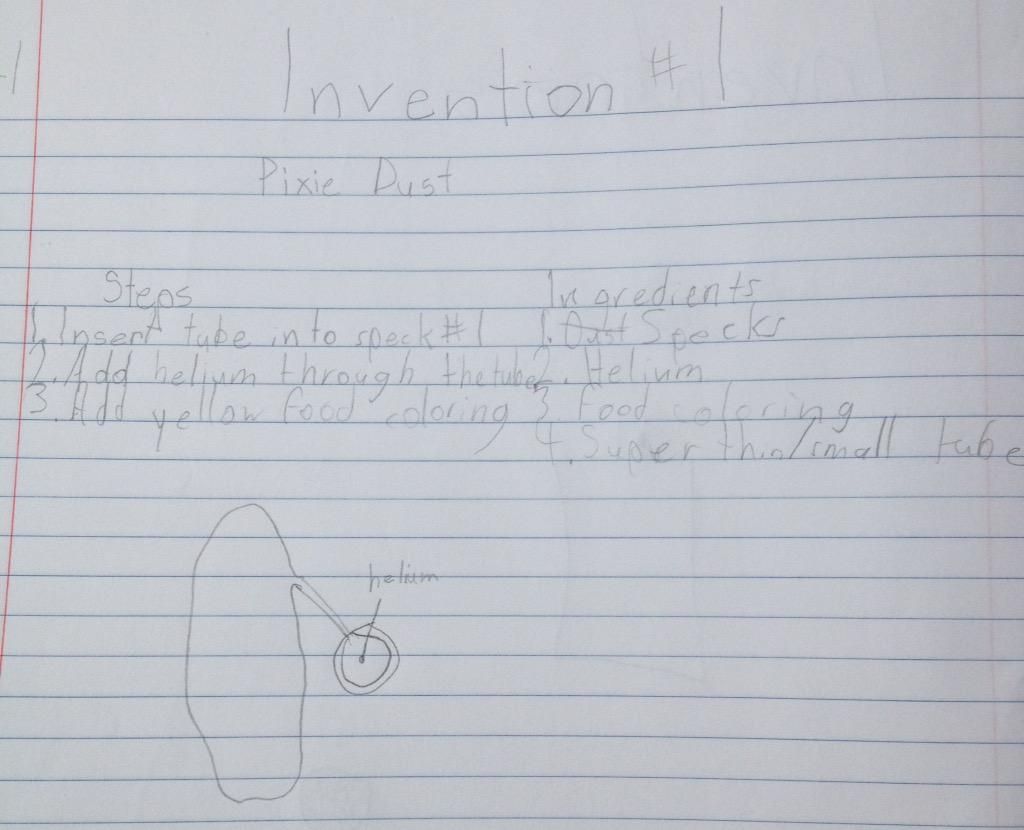 Invention #1
Pixie Dust
Steps
1. Insert tube into speck #1
2. Add helium through the tube
3. Add yellow food coloring
Ingredients
1. Dust Specks
2. Helium
3. Food coloring
4. Super thin/small tube
helium